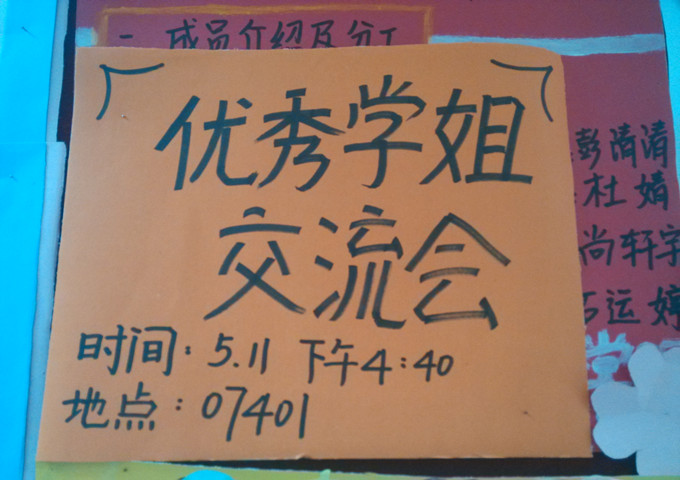 一 成员介绍及分工
优秀学姐
交流会
时间：5.11 下午4:40
地点：07401
彭清清
杜婧
尚轩宇
运婷